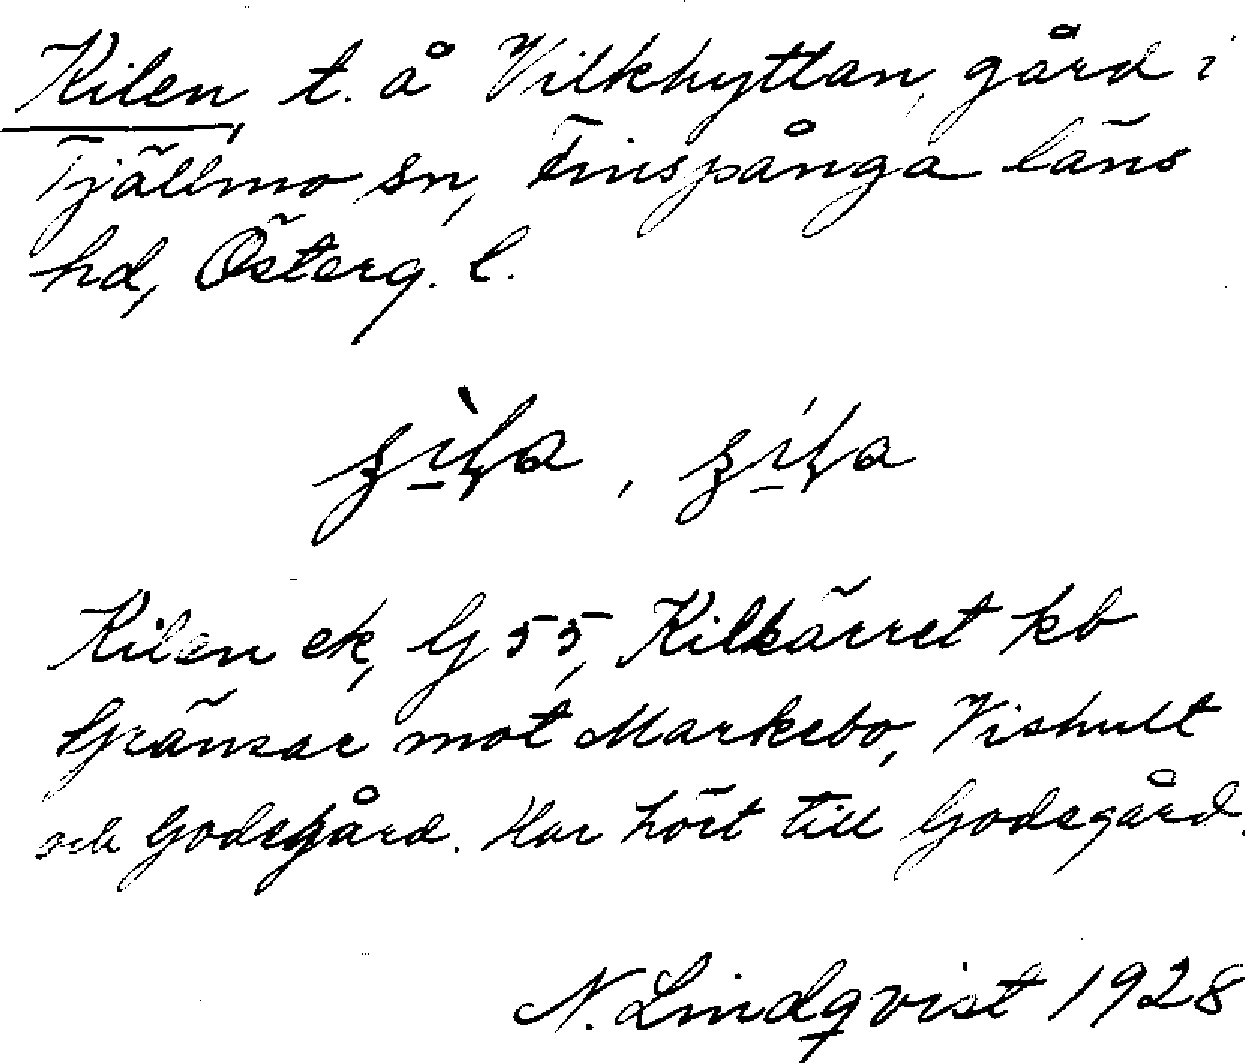 Kilen t. å Vilkhyttan, gård i
Tjällmo sn, Finspånga läns
hd, Österg. l.
Kilen ek, G 55, Kilkärret kb
Gränsar mot Markebo, Vishult
och Godegård. Har hört till Godegård.
N. Lindqvist 1928